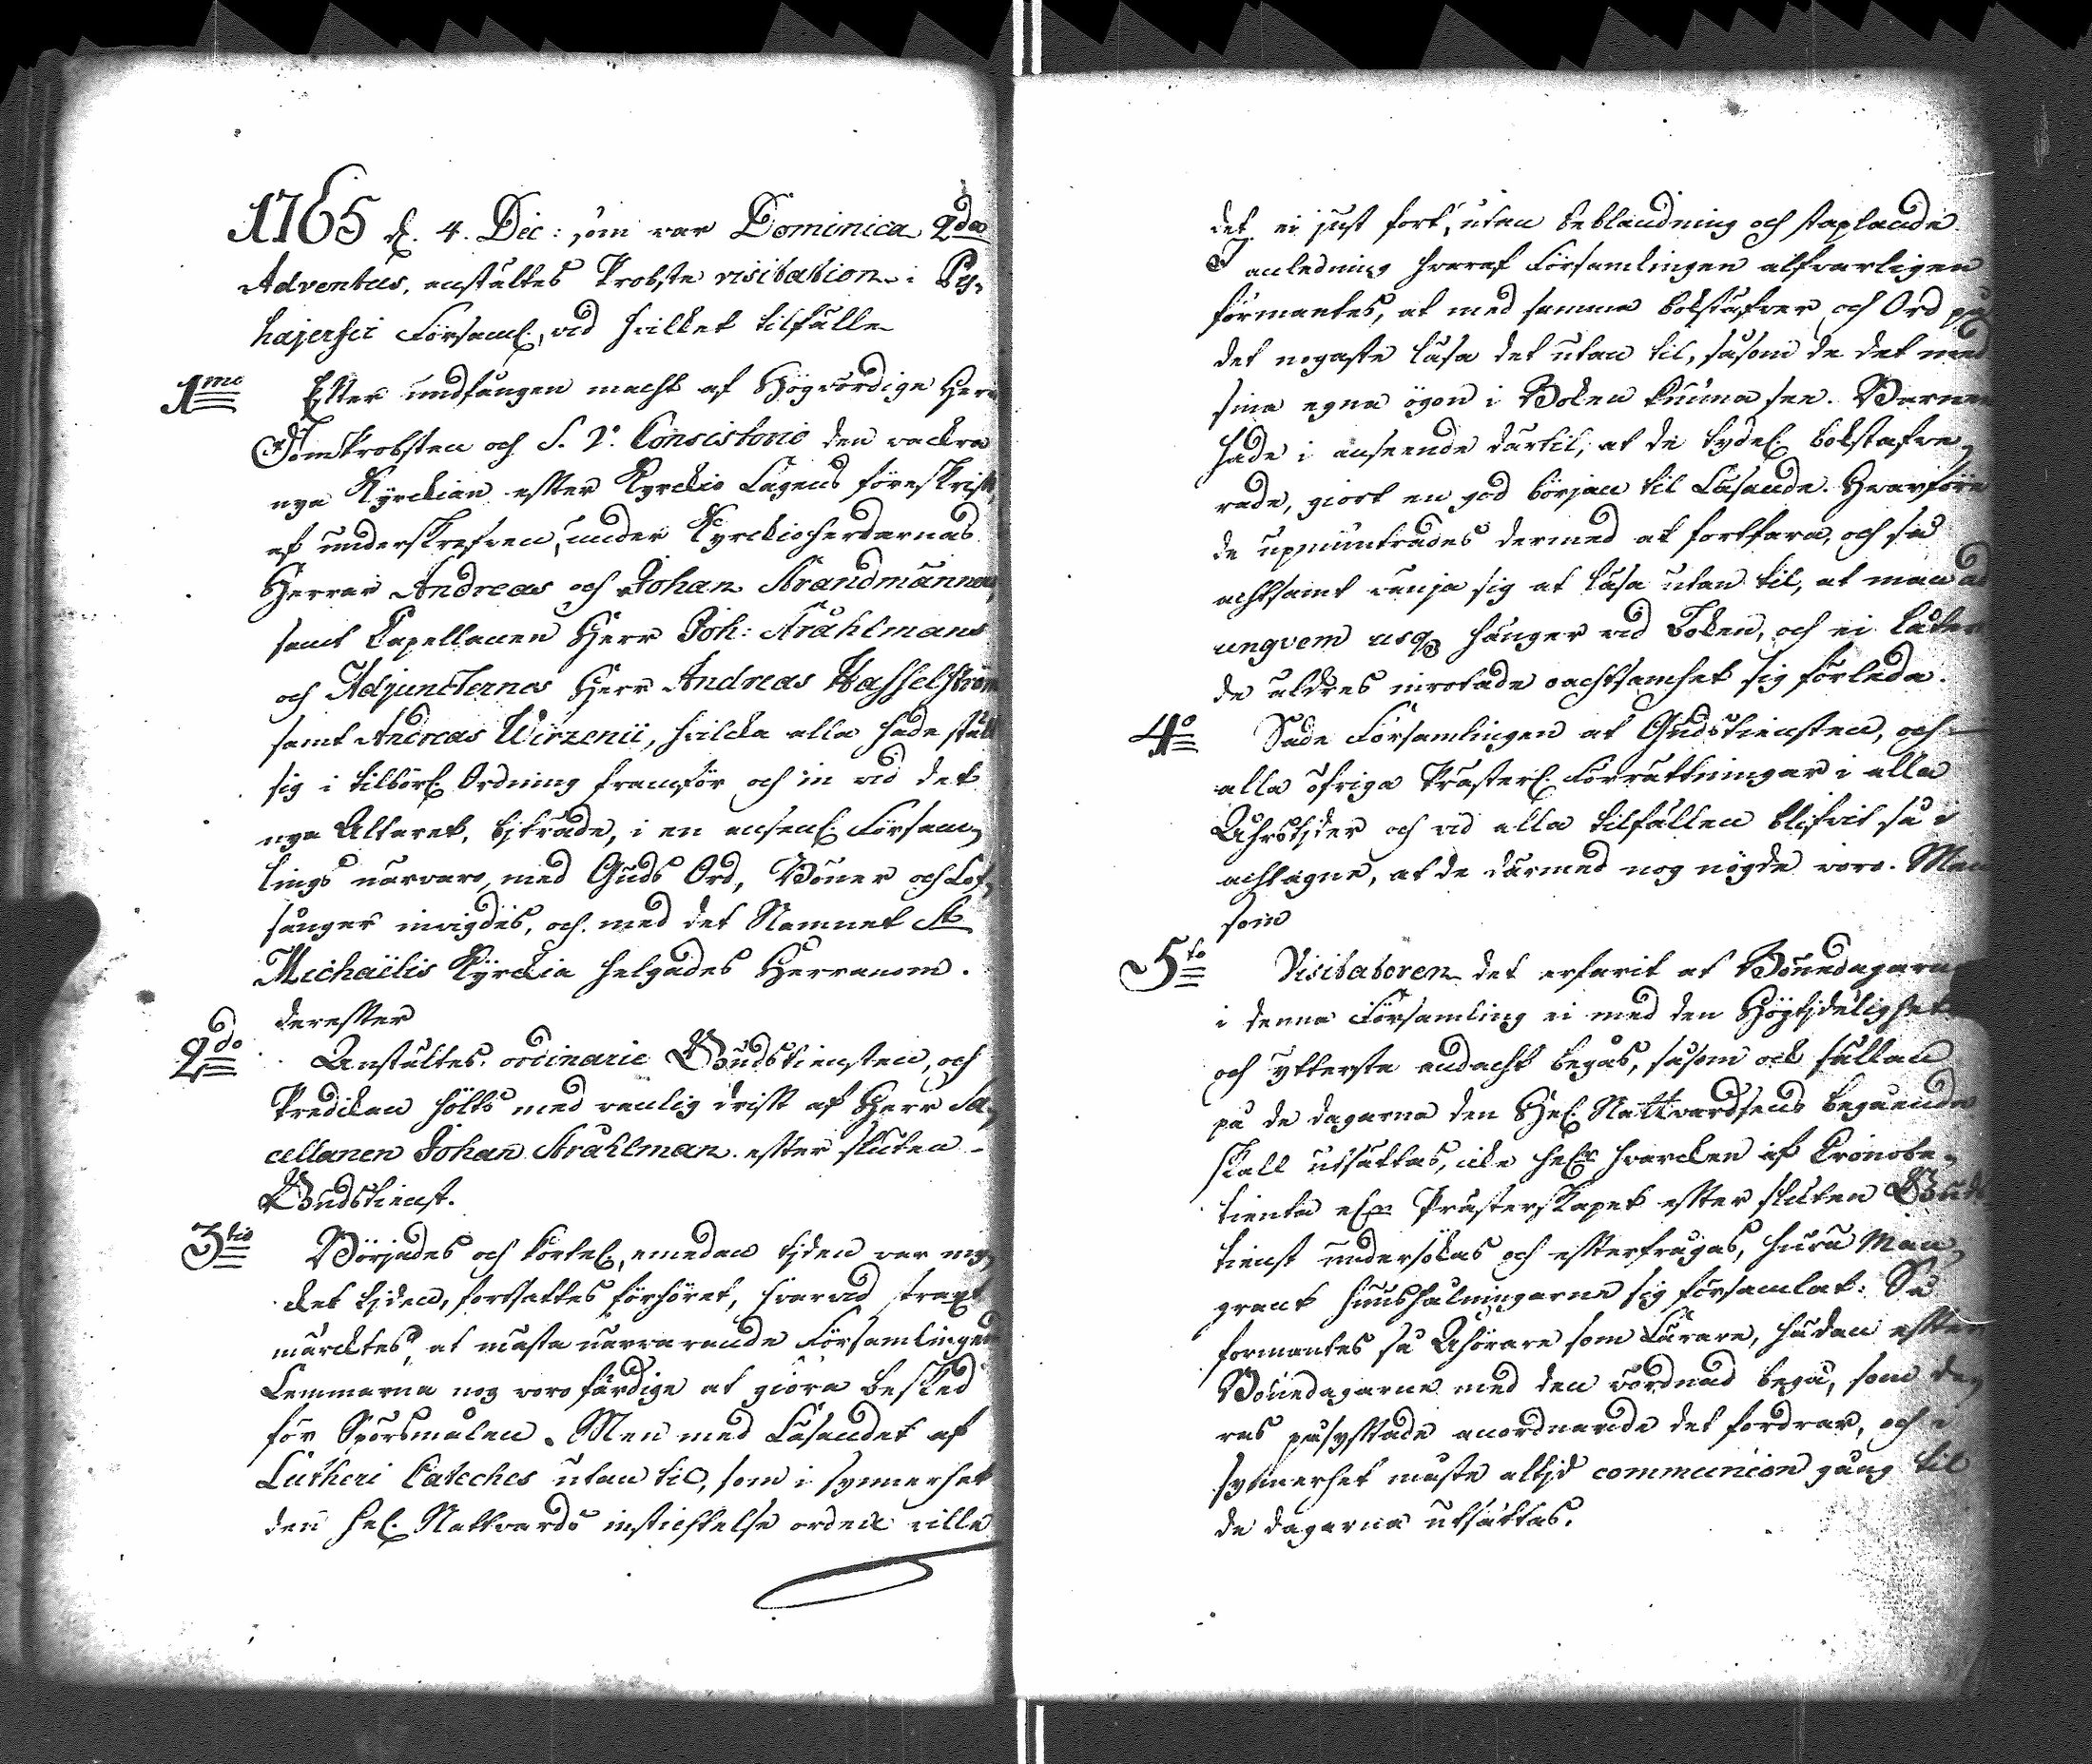 1765 d. 4. Dec: som var Dominica 2da
Adventus, anstältes Probste visitation i Py-
hajerfvi Församl. vid hvilket tilfälle
1mo Efter undfången macht af Högvördige Herr
DomProbsten och S. V. Consistorio den vackra
nya Kyrckian efter Kyrckio Lagens föreskrift,
af underskrefven, under Kyrckioherdarnas
Herrar Andreas och Johan Strandmänners,
samt Capellanen Herr Joh: Stråhlmans
och Adjuncternas Herr Andreas Hasselström
samt Andreas Wirzenii, hvilcka alla hade stält
sig i tilbörl. Ordning framför och in vid det
nya Altaret, biträde, i en ansenl. Försam-
lings närvaro, med Guds Ord, Böner och Lof-
sånger invigdes, och med det Namnet St
Michaëlis Kyrckia helgades Herranom.
derefter
2do Anstältes ordinarie Gudstiensten, och
Predikan hölts med vanlig drift af Herr Sa-
cellanen Johan Stråhlman. efter sluten
Gudstienst.
3tio Börjades och kortel. emedan tiden var myc-
ket liden, fortsattes förhöret, hvarvid straxt
märcktes, at mästa närvarande Församlingens
Lemmarna nog voro färdige at giöra besked
för Spörsmålen. Men med Läsandet af
Lutheri Cateches utan til, som i synnerhet
den hel. Nattvards instichtelse orden ville
det ei just fort, utan beblandning och staplande
I anledning hvaraf Församlingen alfvarligen
förmantes, at med samma bokstäfver och Ord på
det nogaste läsa det utan til, såsom de det med
sina egna ögon i Boken kunna see. Barnen
hade i anseende därtil, at de tydel. bokstafve-
rade, giort en god början til Läsande. Hvarföre
de upmuntrades dermed at fortfara, och så
achtsamt vänja sig at läsa utan til, at man ad
ungvem usq3 hänger vid Boken, och ei låter
de äldres inrotade oachtsamhet sig förleda.
4o Sade Församlingen at Gudstiensten, och
alla öfriga Prästerl. Förrättningar i alla
Åhrstider och vid alla tilfällen blifvit så i
achtagne, at de därmed nog nögde voro. Men
som
5to Visitatoren det erfarit at Bönedagarna
i denna Församling ei med den Högtidelighet
och ytterste andacht begås, såsom ock sällan
på de dagarna den Hel. Nattvardsens begående
skall utsättas, icke heller hvarcken af Cronobe-
tienta eller Prästerskapet efter sluten Guds
tienst undersökas och efterfrågas, huru Man-
grant huushålningarne sig församlat: Så
förmantes så Åhörare som Lärare, hädan efter
Bönedagarne med den vördnad begå, som de-
ras påsyftade anordnande det fordrar, och i
synnerhet måste altid communion gång til
de dagarna utsättas.